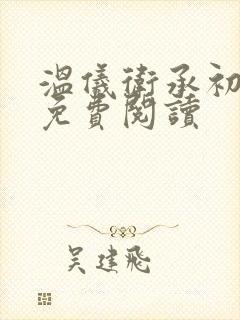 溫儀衛承初
免費閱讀
吴建飛